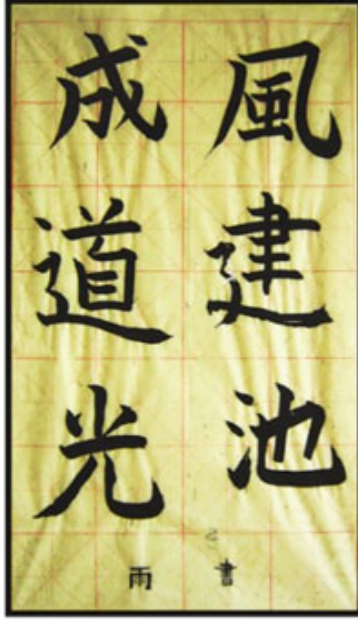 風建池
成道光
書
雨